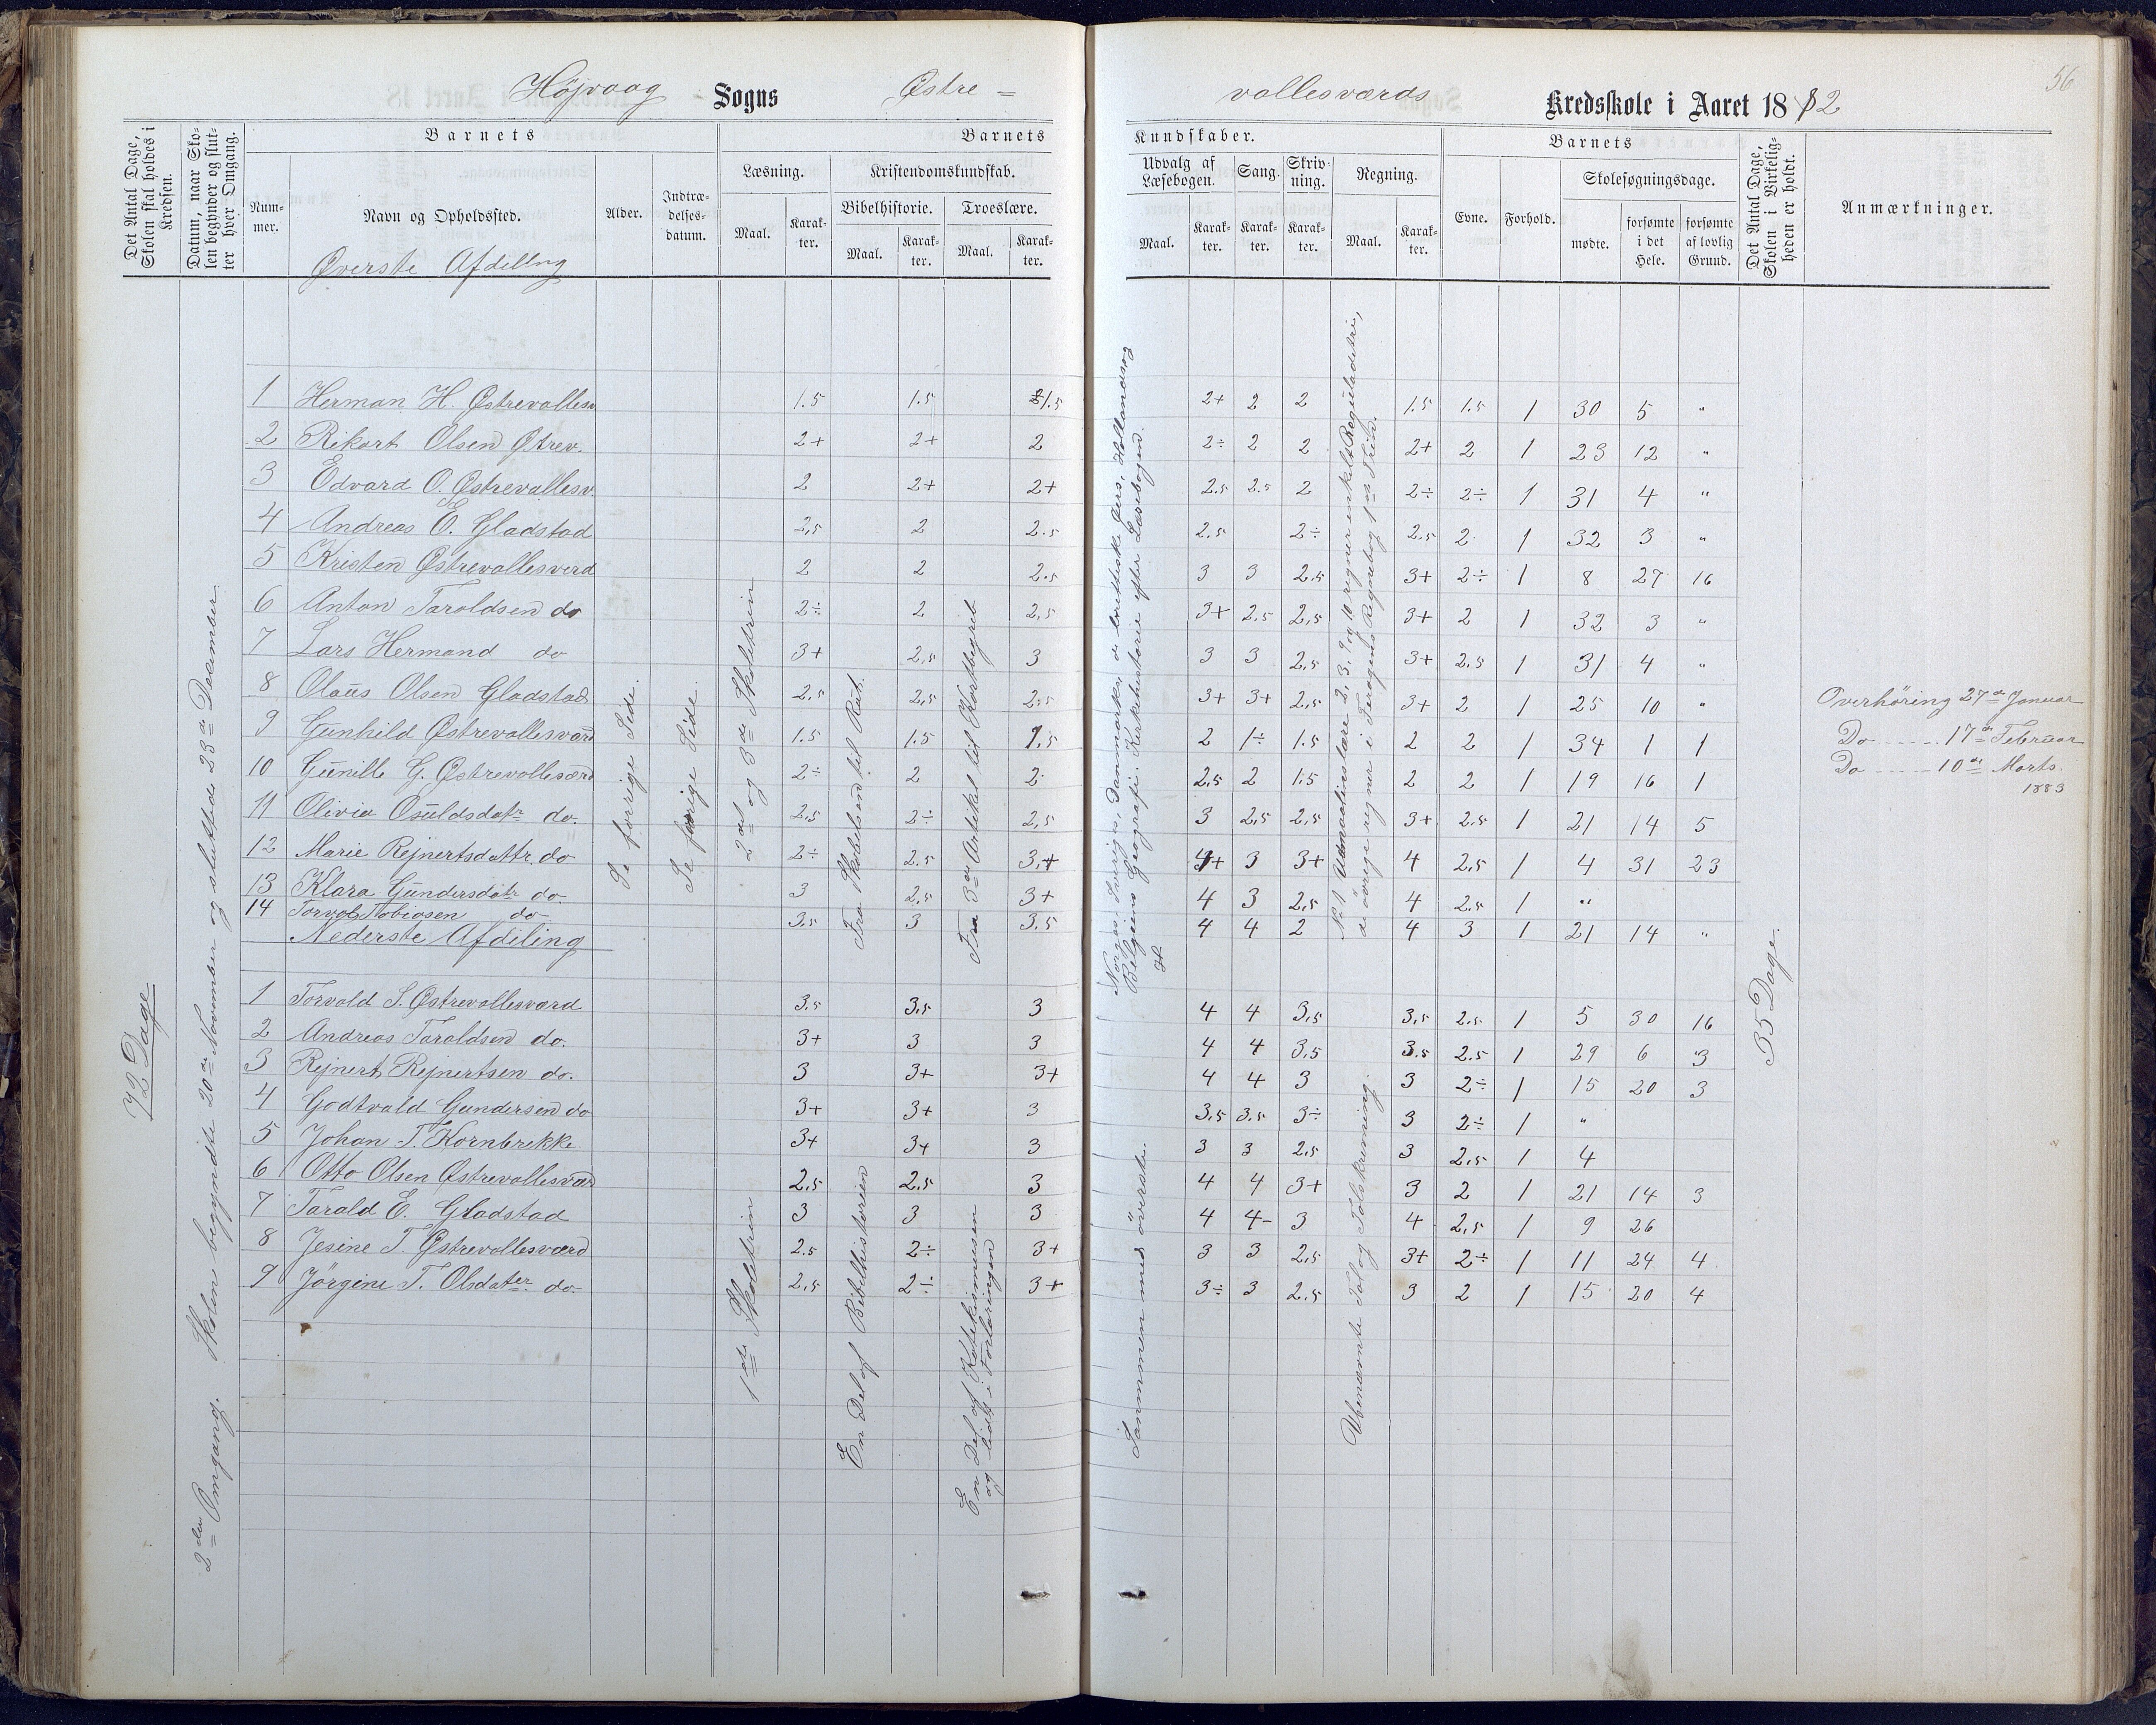 56
Højvaag Sogns Østre =
vallesværds Kredsskole i Aaret 1882
Det Antal Dage, Skolen skal holdes i Kredsen.
Datum, naar Skolen begynder og slutter hver Omgang.
Barnets
Nummer.
Navn og Opholdssted.
Alder.
Indtrædelsesdatum.
Barnets
Læsning.
Maal.
Karakter.
Kristendomskundskab.
Bibelhistorie.
Maal.
Karakter.
Troeslære.
Maal.
Karakter.
Kundskaber.
Udvalg af Læsebogen.
Maal.
Karakter.
Sang.
Karakter.
Skrivning.
Karakter.
Regning.
Maal.
Karakter.
Barnets
Evne.
Forhold.
Skolesøgningsdage.
mødte.
forsømte i det Hele.
forsømte af lovlig Grund.
Det Antal Dage, Skolen i Virkeligheden er holdt.
Anmærkninger.
Øverste Afdeling
1 Herman H. Østrevallesv. 1.5 1.5 1.5 2+ 2 2 1.5 1.5 1 30 5 "
2 Rikart Olsen Østrev. 2+ 2+ 2 2÷ 2 2 2+ 2 1 23 12 "
3 Edvard O. Østrevallesv. 2 2+ 2+ 2.5 2.5 2 2÷ 2÷ 1 31 4 "
4 Andreas E. Gladstad 2,5 2 2.5 2.5 2÷ 2.5 2 1 32 3 "
5 Kristen Østrevallesverd 2 2 2.5 3 3 2.5 3+ 2÷ 1 8 27 16
6 Anton Taroldsen do 2÷ 2 2,5 3+ 2.5 2,5 3+ 2 1 32 3 "
7 Lars Hermand do 3+ 2,5 3 3 3 2,5 3+ 2.5 1 31 4 "
8 Olaus Olsen Gladstad 2.5 2,5 2.5 3+ 3+ 2,5 3+ 2 1 25 10 "
9 Gunhild Østrevallesværd 1.5 1.5 1,5 2 1÷ 1.5 2 2 1 34 1 1
10 Gunille G. Østrevallesærd 2÷ 2 2 2,5 2 1.5 2 2 1 19 16 1
11 Olivia Osuldsdatr do. 2,5 2÷ 2,5 3 2,5 2,5 3+ 2.5 1 21 14 5
12 Marie Rejnertsdattr. do 2÷ 2.5 3,+ 4+ 3 3+ 4 2,5 1 4 31 23
13 Klara Gundersdatr do 3 2,5 3+ 4 3 2,5 4 2.5 1 "
14 Torvals Tobiasen do 3.5 3 3.5 4 4 2 4 3 1 21 14 "
Nederste Afdeling
1 Torvald S. Østrevallesværd 3.5 3,5 3 4 4 3,5 3,5 2.5 1 5 30 16
2 Andreas Taraldsen do. 3+ 3 3 4 4 3,5 3.5 2.5 1 29 6 3
3 Rejnert Rejnertsen do. 3 3+ 3+ 4 4 3 3 2÷ 1 15 20 3
4 Godtvald Gundersen do 3+ 3+ 3 3,5 3,5 3÷ 3 2÷ 1 "
5 Johan T. Kornbrekke 3+ 3+ 3 3 3 2,5 3 2,5 1 4
6 Otto Olsen Østrevallesvær 2,5 2.5 3 4 4 3+ 3 2 1 21 14 3
7 Tarald E. Gladstad 3 3 3 4 4- 3 4 2,5 1 9 26
8 Jesine T. Østrevallesværd 2.5 2÷ 3+ 3 3 2,5 3+ 2÷ 1 11 24 4
9 Jörgine T. Olsdater. do 2,5 2÷ 3+ 3÷ 3 2.5 3 2 1 15 20 4
72 Dage
2den Omgang. Skolen begyndte 20de November og sluttede 23de December
Se forrige Side.
Se forrige Side.
2det og 3de Skoletrin
1ste Skoletrin
Fra Skabelsen til Rut.
En Del af Bibelhistorien
Fra 3de Artikel til Kortbegreb
En Del af Katekismusen
og lidt i Forlaringen
Norges, Sveriges, Danmarks, de brittiske Øers, Hollands og
Belgiens Geografi. Kirkehistorie efter Læsebogen.
Sammen med överste.
No 1 2, 3, 9 og 10 regner enkelt Reguladetri,
de övrige regner i Regnebog 1ste Trin.
Ubenævnte Tal og Talskrivning.
35 Dage.
Overhöring 27de Januar
Do 17de Februar
Do 10de Marts.
1883